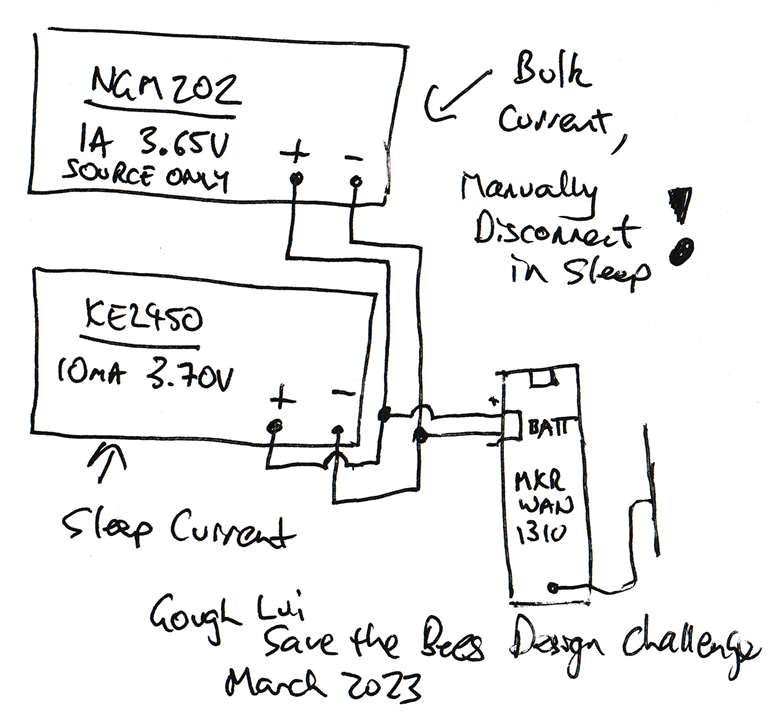 NGM202
1A 3.65V
SOURCE ONLY
+ -
Bulk
Current,
Manually
Disconnect
in Sleep
!
KE2450
10mA 3.70V
+ -
Sleep Current
+
-
BATT
MKR
WAN
1310
Gough Lui
Save the Bees Design Challenge
March 2023